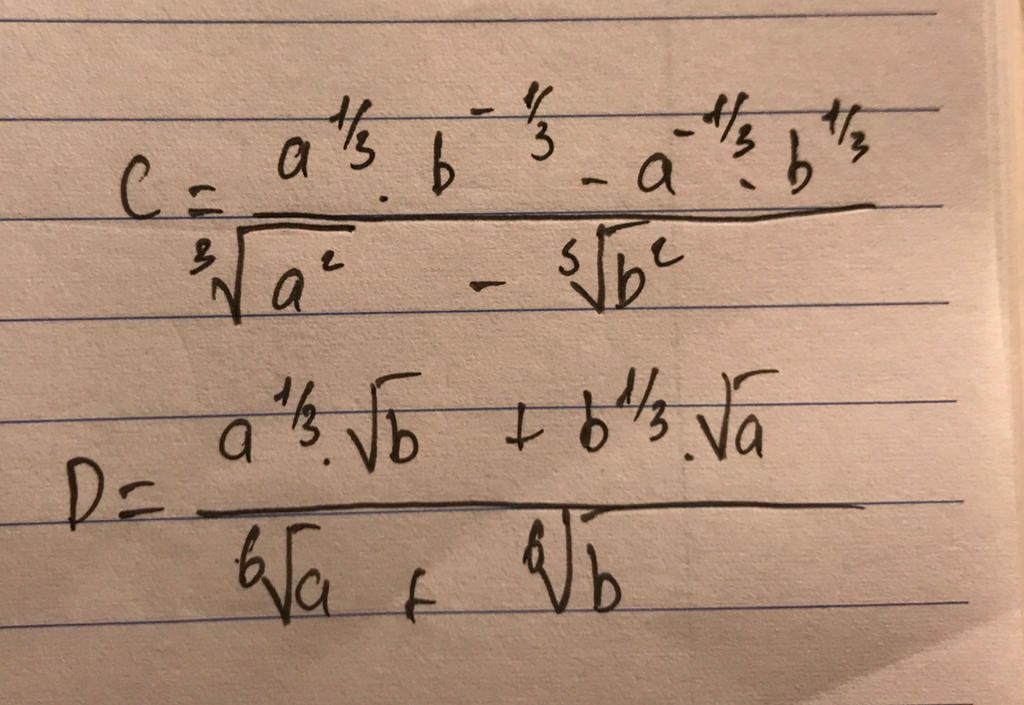 C = (a^{1/3} . b^{-1/3} - a^{-1/3} . b^{1/3}) / (∛(a²) - ⁵√(b²))
D = (a^{1/3} . √b + b^{1/3} . √a) / (⁶√a + ⁶√b)